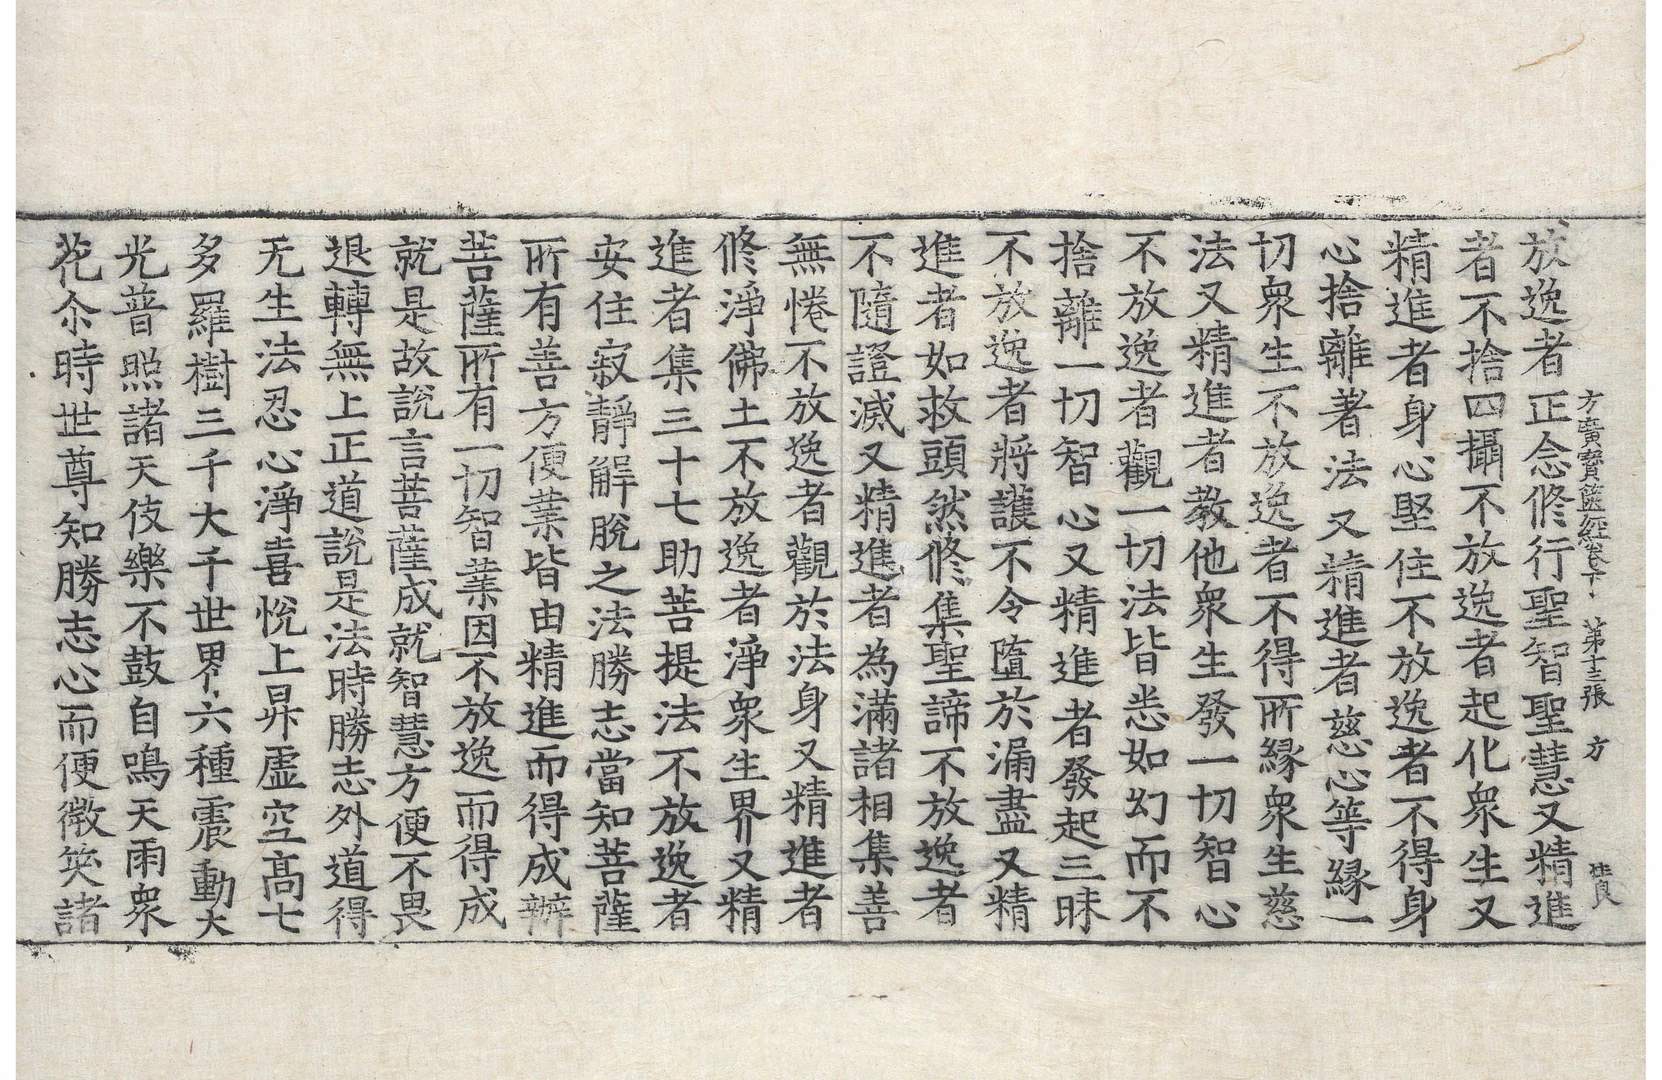 方廣寶篋經卷下 第十三張 方
放逸者正念修行聖智聖慧又精進
者不捨四攝不放逸者起化衆生又
精進者身心堅住不放逸者不得身
心捨離著法又精進者慈心等緣一
切衆生不放逸者不得所緣衆生慈
法又精進者教他衆生發一切智心
不放逸者觀一切法皆悉如幻而不
捨離一切智心又精進者發起三昧
不放逸者將護不令墮於漏盡又精
進者如救頭然修集聖諦不放逸者
不隨證滅又精進者為滿諸相集善
無惓不放逸者觀於法身又精進者
修淨佛土不放逸者淨衆生界又精
進者集三十七助菩提法不放逸者
安住寂靜解脫之法勝志當知菩薩
所有善方便業皆由精進而得成辦
菩薩所有一切智業因不放逸而得成
就是故說言菩薩成就智慧方便不畏
退轉無上正道說是法時勝志外道得
无生法忍心淨喜悅上昇虛空高七
多羅樹三千大千世界六種震動大
光普照諸天伎樂不鼓自鳴天雨衆
花尒時世尊知勝志心而便微笑諸